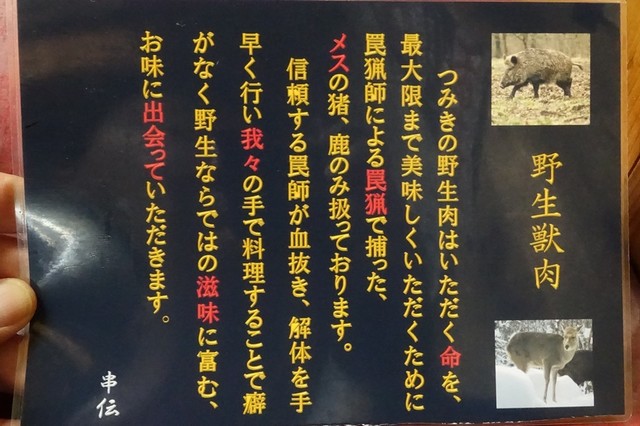 野生獣肉
つみきの野生肉はいただく命を、
最大限まで美味しくいただくために
罠猟師による罠猟で捕った、
メスの猪、鹿のみ扱っております。
信頼する罠師が血抜き、解体を手
早く行い我々の手で料理することで癖
がなく野生ならではの滋味に富む、
お味に出会っていただきます。
串伝